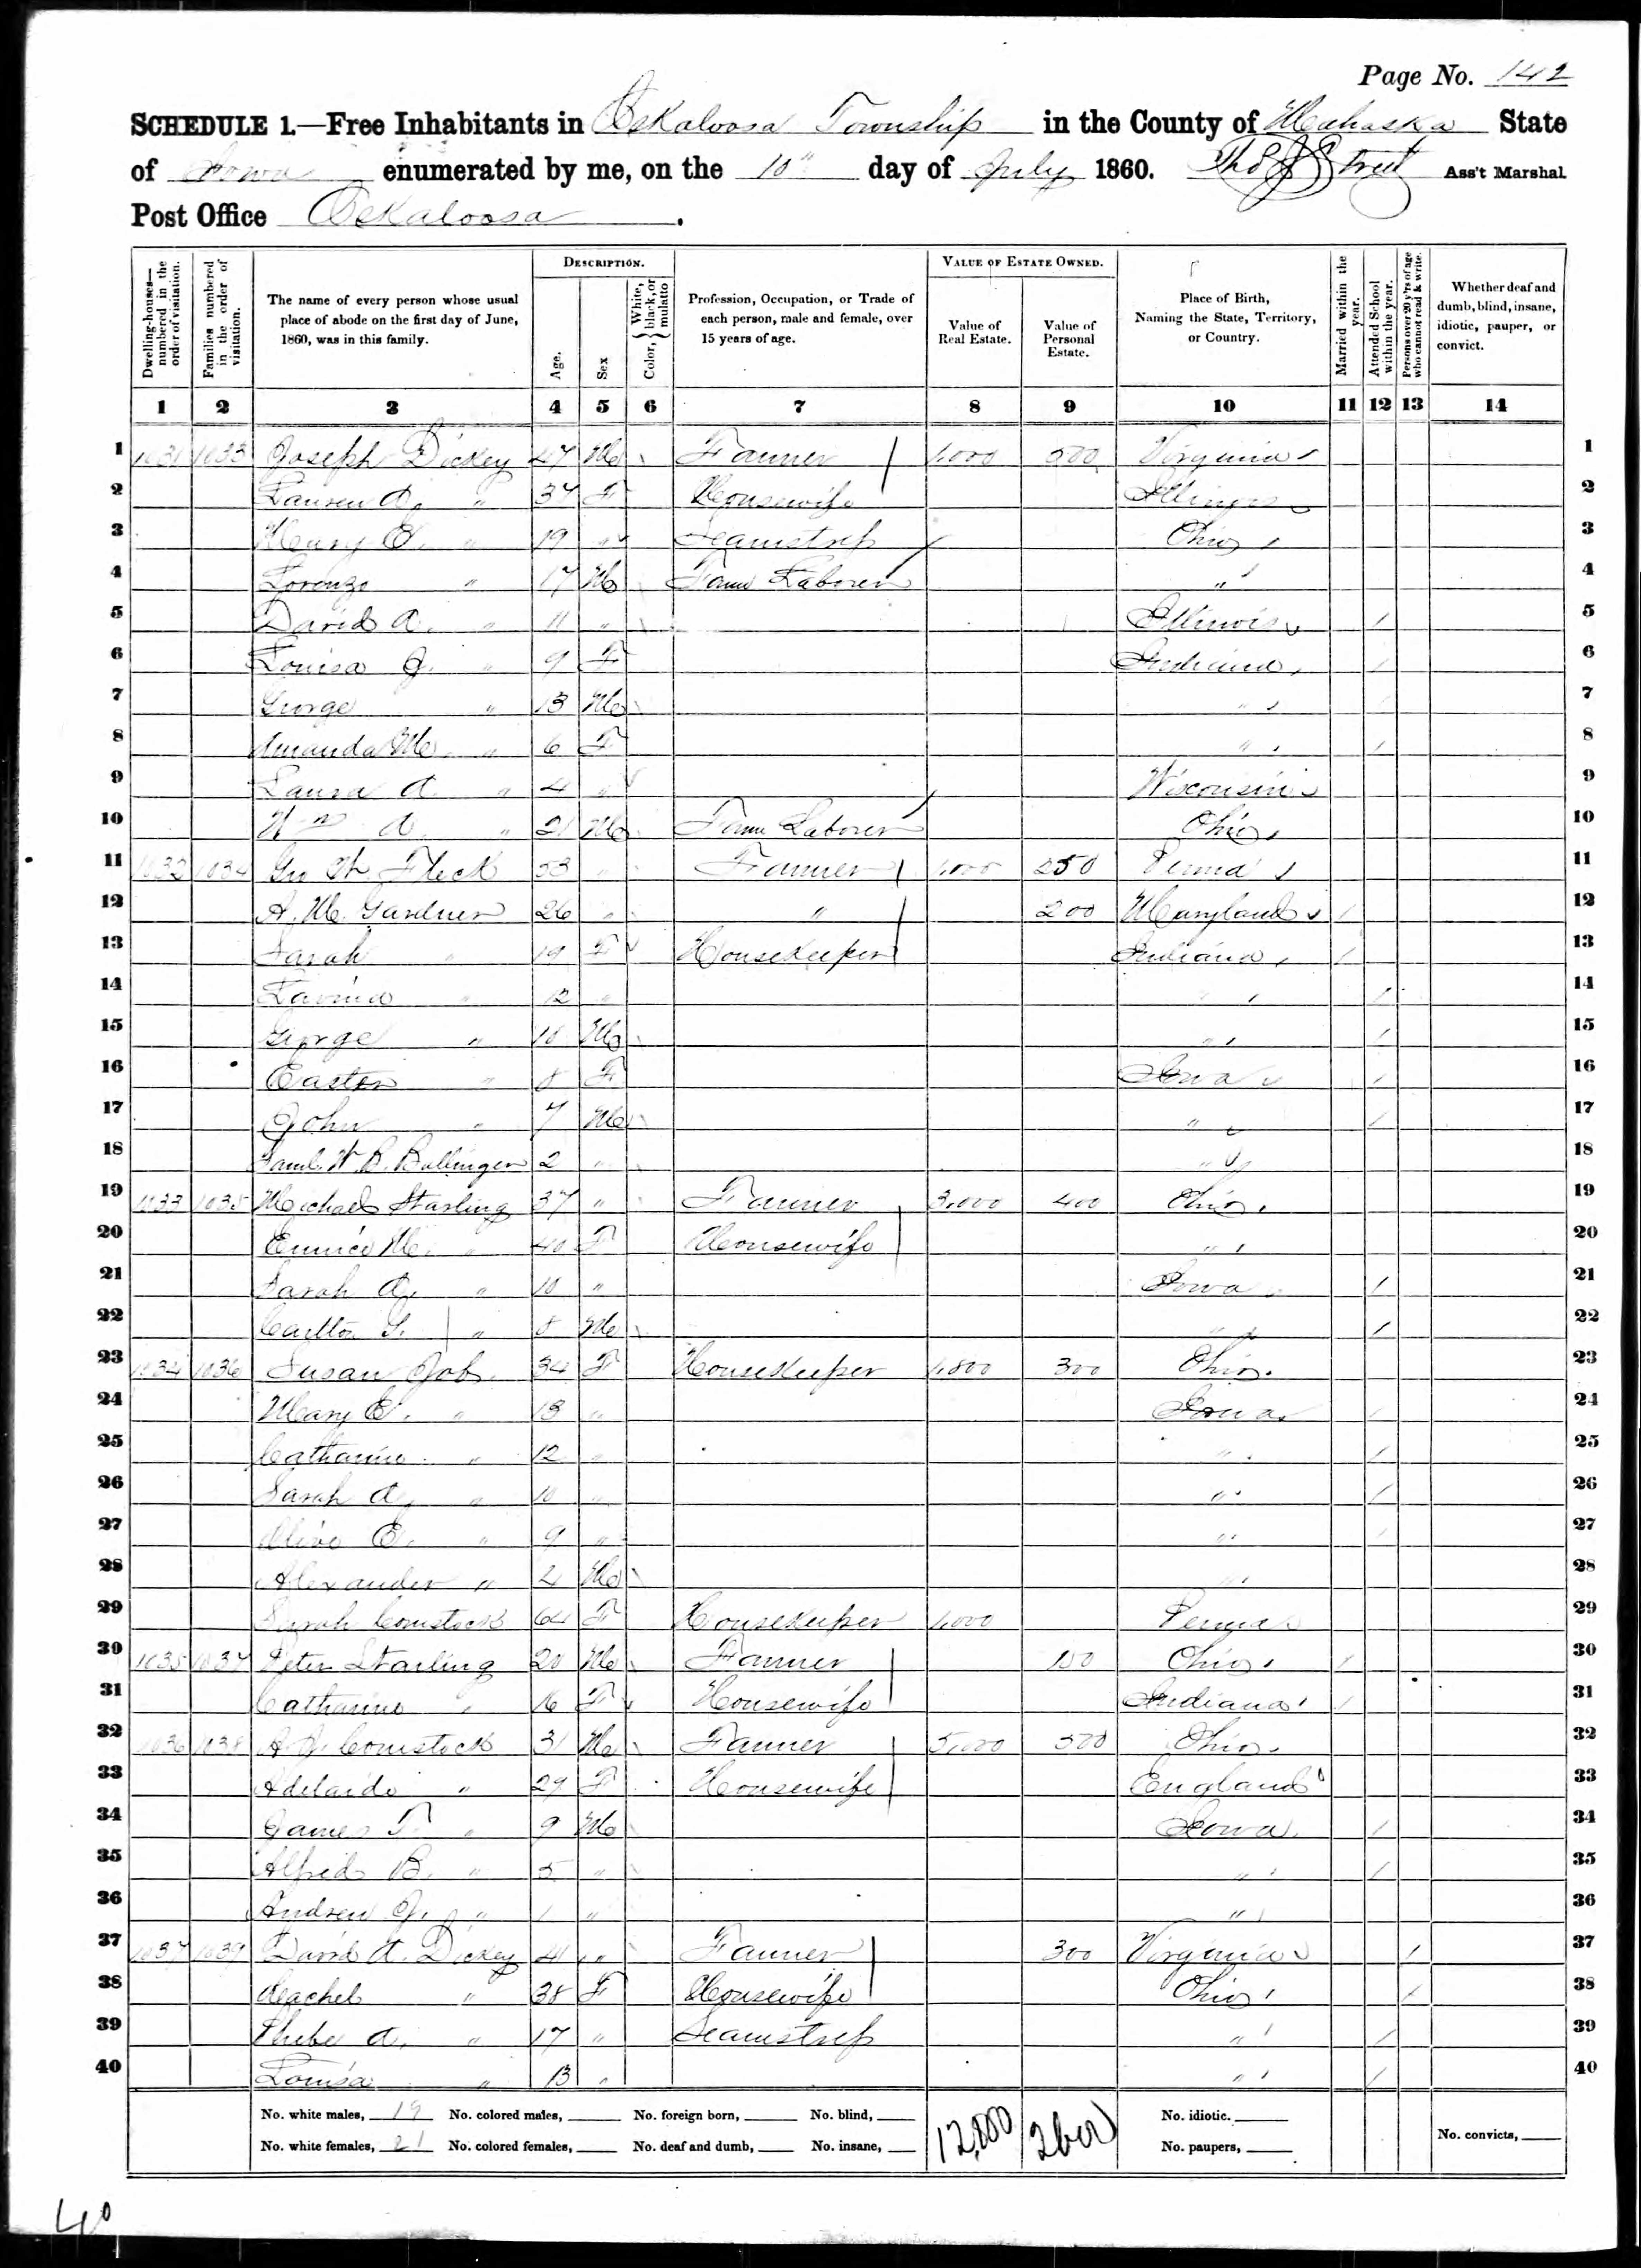 Page No. 142
SCHEDULE 1.—Free Inhabitants in Oskaloosa Township in the County of Mahaska State
of Iowa enumerated by me, on the 10" day of July 1860. Thos J Street Ass't Marshal.
Post Office Oskaloosa.
Dwelling-houses—numbered in the order of visitation.
Families numbered in the order of visitation.
The name of every person whose usual place of abode on the first day of June, 1860, was in this family.
DESCRIPTION.
Age.
Sex
Color, { White, black, or mulatto
Profession, Occupation, or Trade of each person, male and female, over 15 years of age.
VALUE OF ESTATE OWNED.
Value of Real Estate.
Value of Personal Estate.
Place of Birth, Naming the State, Territory, or Country.
Married within the year.
Attended School within the year.
Persons over 20 y'rs of age who cannot read & write.
Whether deaf and dumb, blind, insane, idiotic, pauper, or convict.
1 2 3 4 5 6 7 8 9 10 11 12 13 14
1 1031 1033 Joseph Dickey 47 M Farmer 1,000 500 Virginia 1
2 A. " 37 F Housewife Illinois 2
3 Mary E. " 19 " Seamstress Ohio 3
4 Lorenzo " 17 M Farm Laborer " 4
5 David A. " 11 " Illinois / 5
6 Louisa J. " 9 F Indiana / 6
7 George " 13 M " / 7
8 Amanda M. " 6 F " / 8
9 Laura A. " 4 " Wisconsin 9
10 Wm A. " 21 M Farm Laborer Ohio 10
11 1032 1034 Fleck 53 " Farmer 1,000 250 Penna 11
12 A. M. Gardner 26 " " 200 Maryland / 12
13 Sarah " 19 F Housekeeper Indiana / 13
14 Lavina " 12 " " / 14
15 George " 10 M " / 15
16 Easter " 8 F Iowa / 16
17 John " 7 M " / 17
18 Saml. W. B. Ballinger 2 " " 18
19 1033 1035 Michael Starling 37 " Farmer 3,000 400 Ohio 19
20 Eunice M. " 40 F Housewife " 20
21 Sarah A. " 10 " Iowa / 21
22 Carlton S. " 8 M " / 22
23 1034 1036 Susan Job 34 F Housekeeper 1,800 300 Ohio 23
24 Mary E. " 13 " Iowa / 24
25 Catharine " 12 " " / 25
26 Sarah A. " 10 " " / 26
27 Olive E. " 9 " " / 27
28 Alexander " 4 M " 28
29 Sarah Comstock 64 F Housekeeper 1,000 Penna 29
30 1035 1037 Peter Starling 20 M Farmer 150 Ohio / 30
31 Catharine " 16 F Housewife Indiana / 31
32 1036 1038 A. J. Comstock 31 M Farmer 5,000 500 Ohio 32
33 Adelaide " 29 F Housewife England 33
34 James T. " 9 M Iowa / 34
35 Alfred B. " 5 " " / 35
36 Andrew J. " 1 " " 36
37 1037 1039 David A. Dickey 41 " Farmer 300 Virginia / 37
38 Rachel " 38 F Housewife Ohio / 38
39 Phebe A. " 17 " Seamstress " / 39
40 Louisa " 13 " " / 40
No. white males, 19 No. colored males, No. foreign born, No. blind, 12,800 2600 No. idiotic.
No. white females, 21 No. colored females, No. deaf and dumb, No. insane, No. paupers, No. convicts,
40